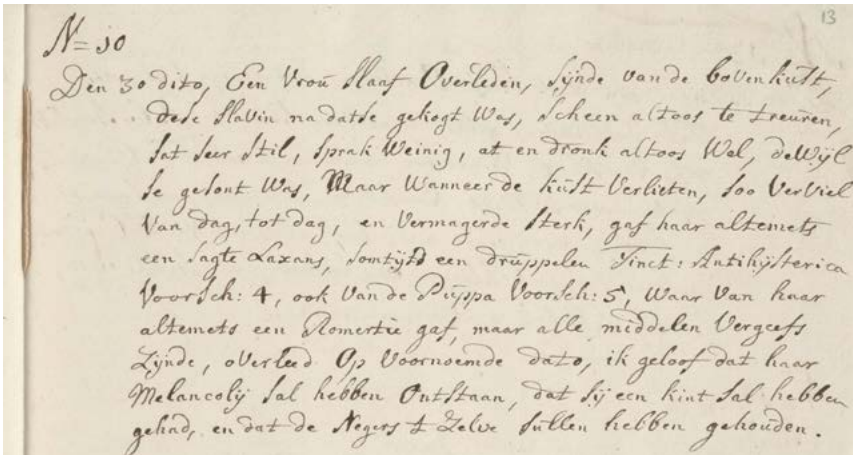 13
N=10
Den 30 dito, Een Vrou Slaaf Overleden, sijnde van de bovenkust,
dese Slavin na datse gekogt Was, scheen altoos te treuren,
sat seer stil, sprak Weinig, at en dronk altoos Wel, deWijl
se gesont Was, Maar Wanneer de kust Verlieten, soo VerViel
Van dag, tot dag, en Vermagerde sterk, gaf haar altemets
een sagte Laxans, somtijds een drüppelen Tinct: Antihijsterica
Voorsch: 4, ook Van de Püppa Voorsch: 5, Waar Van haar
altemets een Romertie gaf, maar alle middelen Vergeefs
Zijnde, overleed Op Voornoemde dato, ik geloof dat haar
Melancolij sal hebben Ontstaan, dat sij een kint sal hebben
gehad, en dat de Negers 't Zelve süllen hebben gehouden.